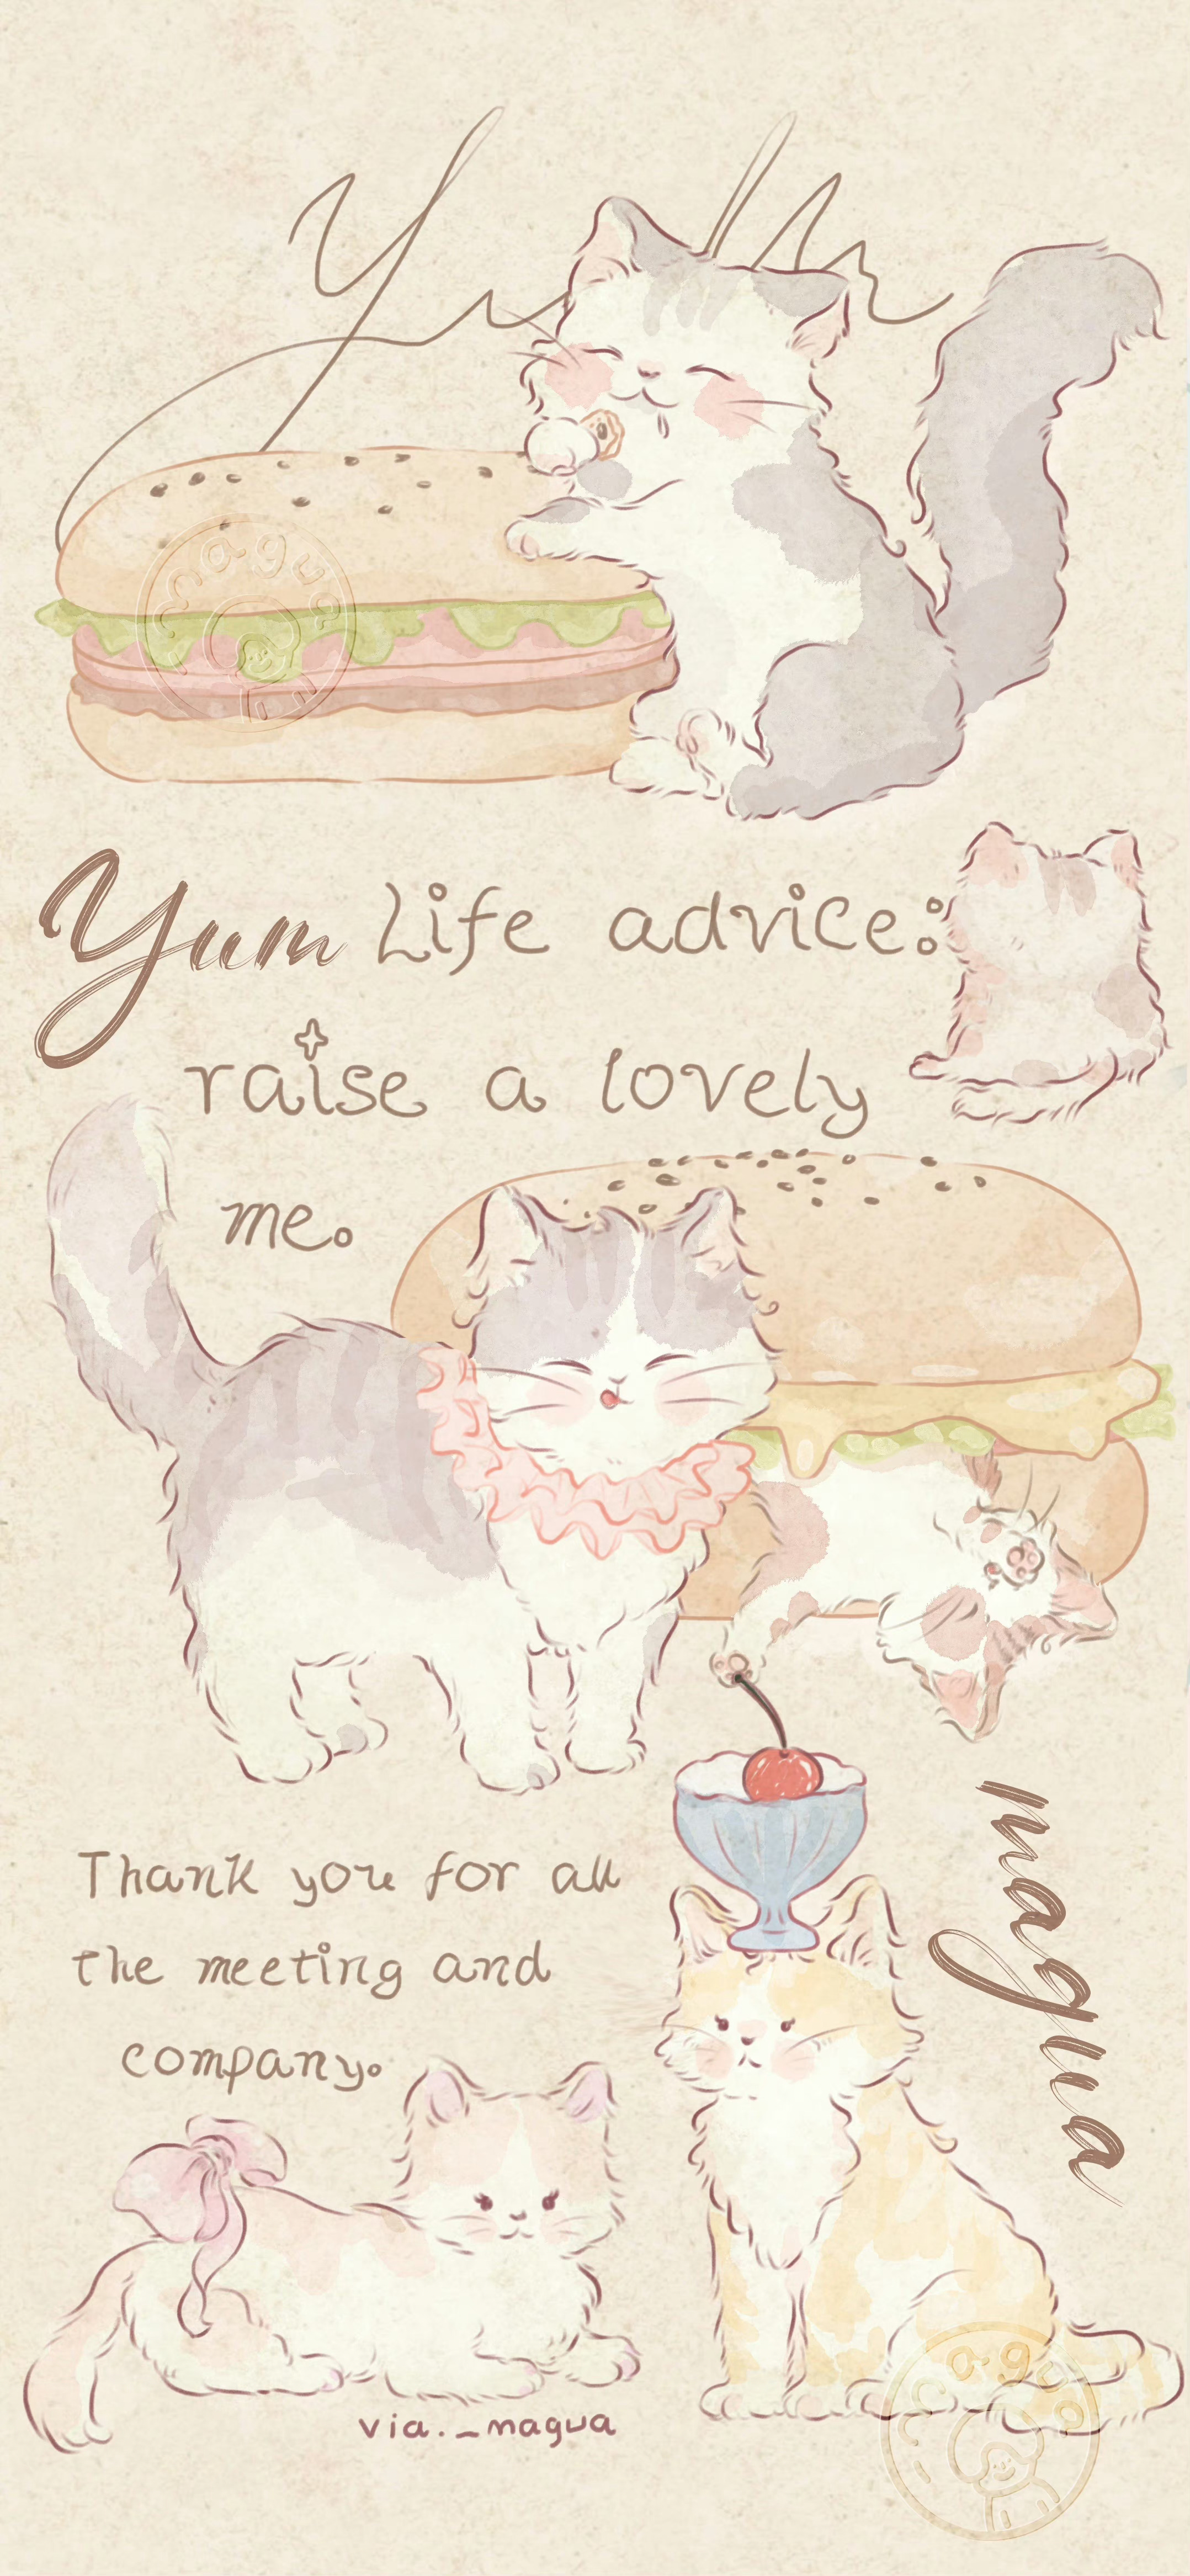 Yum
magua
Yum Life advice:
raise a lovely
me.
magua
Thank you for all
the meeting and
company.
via._magua
magua